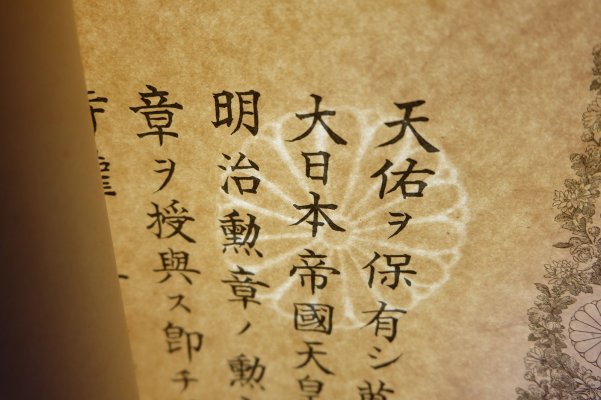 天佑ヲ保有シ萬
大日本帝國天皇
明治勲章ノ勲
章ヲ授與ス卽チ